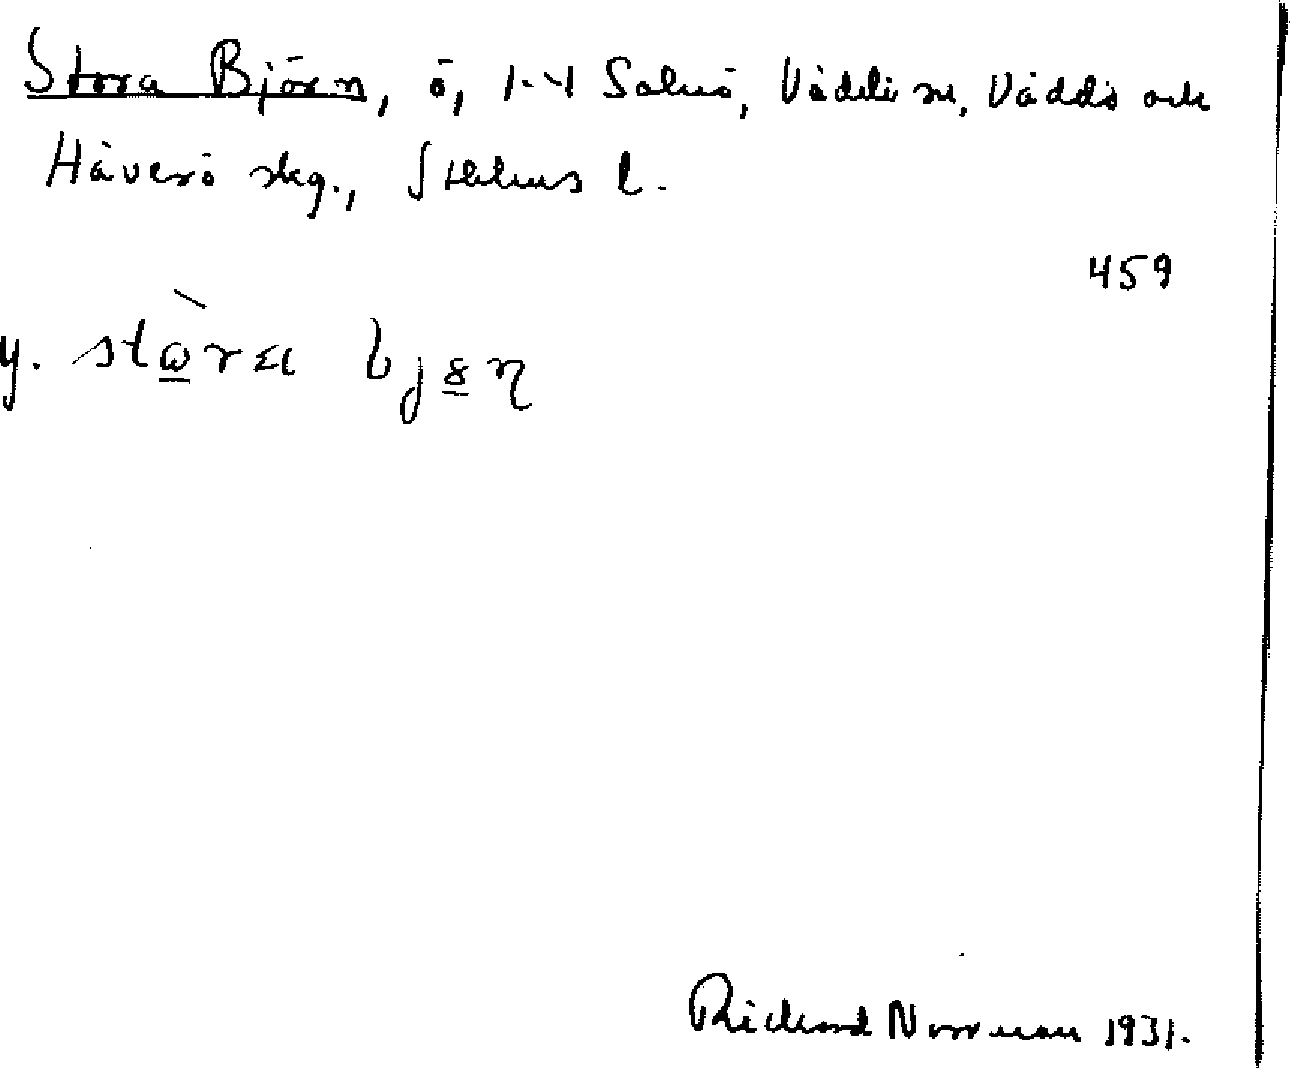 Stora Björn, ö, 1-4 Salnö, Väddö sn, Väddö och
Häverö skg., Sthlms l.
459
y. stὼra bjȣn
Richard Norrman 1931.